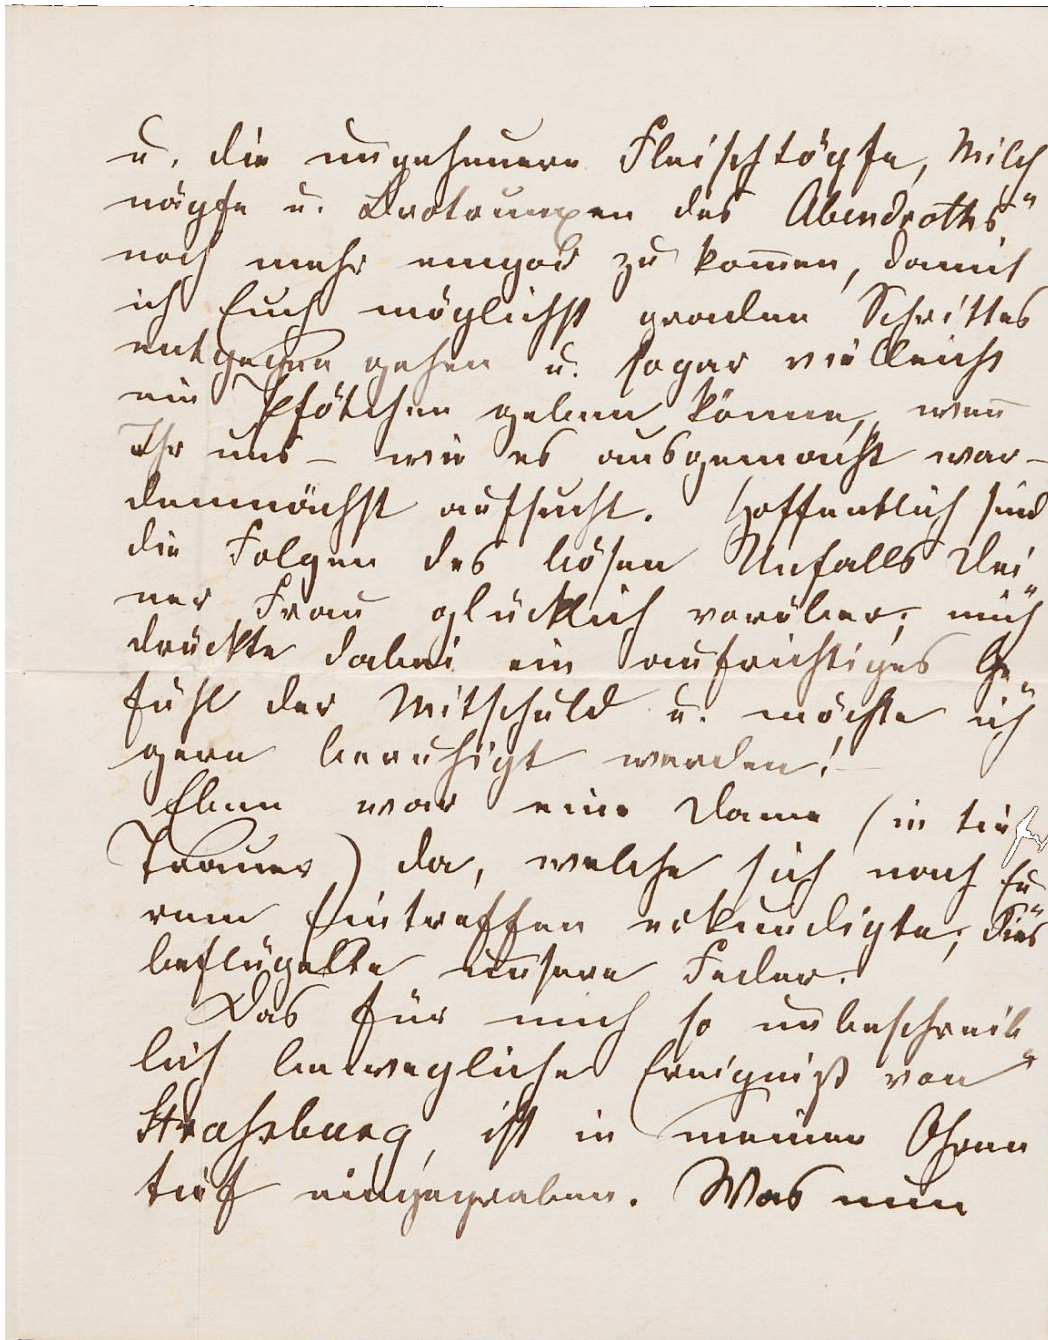 u. die ungeheuere Fleischtöpfe, Milch
näpfe u. Brotrunxen des Abendroths"
noch mehr empor zu kom̄en, damit
ich Euch möglichst geraden Schrittes
entgegen gehen u. sogar vielleicht
ein Pfötchen geben könne, wen̄
Ihr uns – wie es ausgemacht war –
demnächst aufsucht. Hoffentlich sind
die Folgen des bösen Unfalls Dei
ner Frau glücklich vorüber; mich
drückte dabei ein aufrichtiges Ge-
fühl der Mitschuld u. möchte ich
gern beruhigt werden! –
Eben war eine Dame (in tiefer
Trauer) da, welche sich nach Eu
rem Eintreffen erkundigte; dies
beflügelte unsere Feder.
Das für mich so unbeschreib
lich bewegliche Ereigniß von
Strahsburg, ist in meinen Ohren
tief eingegraben. Was nun